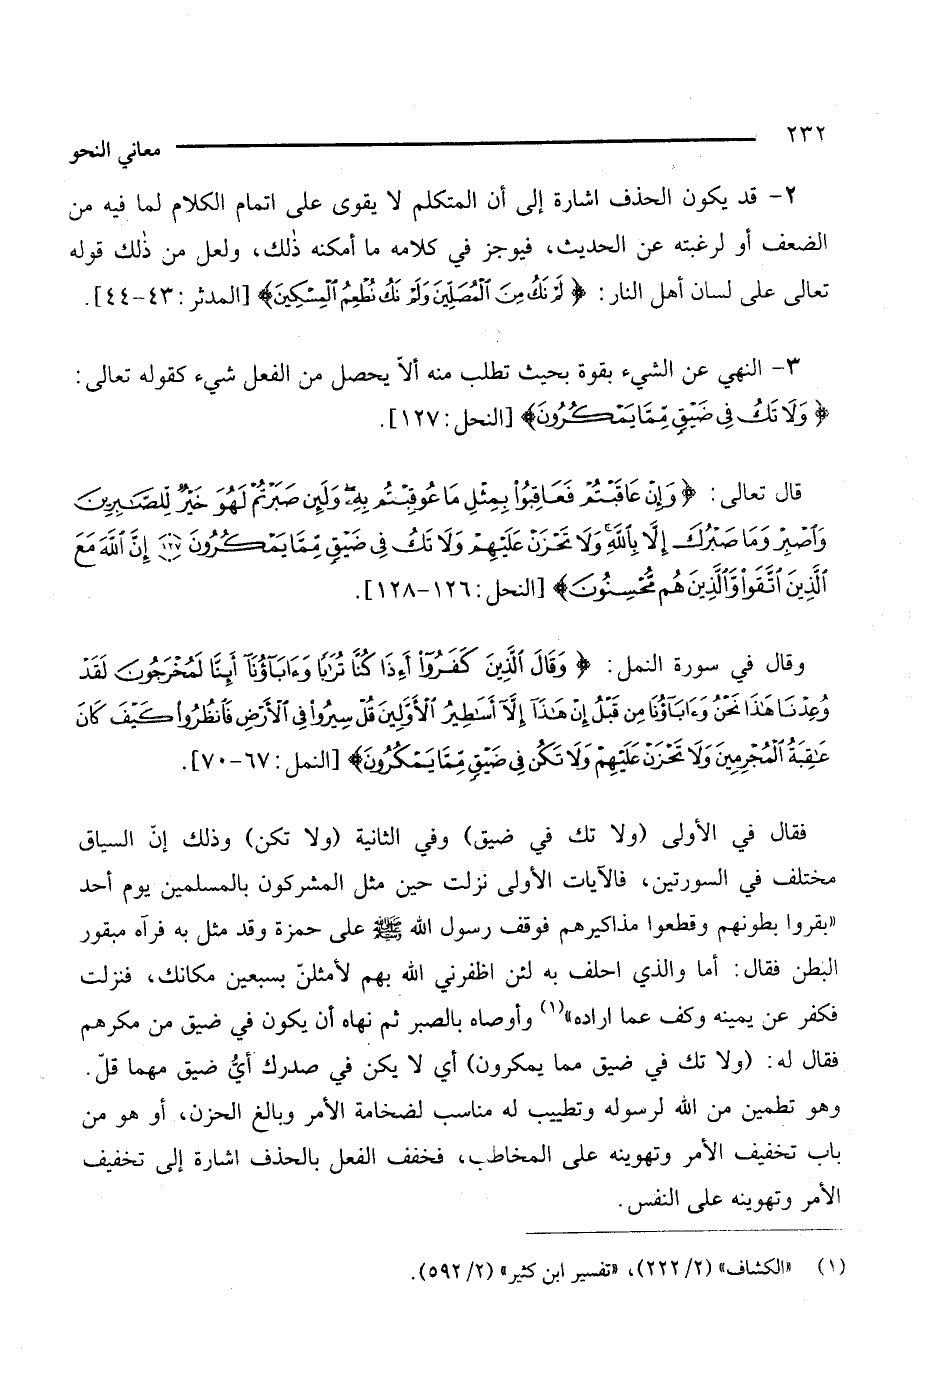 ٢٣٢
معاني النحو
٢- قد يكون الحذف اشارة إلى أن المتكلم لا يقوى على اتمام الكلام لما فيه من
الضعف أو لرغبته عن الحديث، فيوجز في كلامه ما أمكنه ذٰلك، ولعل من ذٰلك قوله
تعالى على لسان أهل النار: ﴿ لَمْ نَكُ مِنَ ٱلْمُصَلِّينَ وَلَمْ نَكُ نُطْعِمُ ٱلْمِسْكِينَ﴾ [المدثر: ٤٣-٤٤].
٣- النهي عن الشيء بقوة بحيث تطلب منه ألاّ يحصل من الفعل شيء كقوله تعالى:
﴿ وَلَا تَكُ فِى ضَيْقٍ مِّمَّا يَمْكُرُونَ﴾ [النحل: ١٢٧].
قال تعالى: ﴿ وَإِنْ عَاقَبْتُمْ فَعَاقِبُوا۟ بِمِثْلِ مَا عُوقِبْتُم بِهِۦ وَلَئِن صَبَرْتُمْ لَهُوَ خَيْرٌ لِّلصَّٰبِرِينَ
وَٱصْبِرْ وَمَا صَبْرُكَ إِلَّا بِٱللَّهِ وَلَا تَحْزَنْ عَلَيْهِمْ وَلَا تَكُ فِى ضَيْقٍ مِّمَّا يَمْكُرُونَ ١٢٧ إِنَّ ٱللَّهَ مَعَ
ٱلَّذِينَ ٱتَّقَوا۟ وَّٱلَّذِينَ هُم مُّحْسِنُونَ﴾ [النحل: ١٢٦-١٢٨].
وقال في سورة النمل: ﴿ وَقَالَ ٱلَّذِينَ كَفَرُوٓا۟ أَءِذَا كُنَّا تُرَٰبًا وَءَابَآؤُنَآ أَئِنَّا لَمُخْرَجُونَ لَقَدْ
وُعِدْنَا هَٰذَا نَحْنُ وَءَابَآؤُنَا مِن قَبْلُ إِنْ هَٰذَآ إِلَّآ أَسَٰطِيرُ ٱلْأَوَّلِينَ قُلْ سِيرُوا۟ فِى ٱلْأَرْضِ فَٱنظُرُوا۟ كَيْفَ كَانَ
عَٰقِبَةُ ٱلْمُجْرِمِينَ وَلَا تَحْزَنْ عَلَيْهِمْ وَلَا تَكُن فِى ضَيْقٍ مِّمَّا يَمْكُرُونَ﴾ [النمل: ٦٧-٧٠].
فقال في الأولى (ولا تك في ضيق) وفي الثانية (ولا تكن) وذلك إنّ السياق
مختلف في السورتين، فالآيات الأولى نزلت حين مثل المشركون بالمسلمين يوم أحد
«بقروا بطونهم وقطعوا مذاكيرهم فوقف رسول الله ﷺ على حمزة وقد مثل به فرآه مبقور
البطن فقال: أما والذي احلف به لئن اظفرني الله بهم لأمثلنّ بسبعين مكانك، فنزلت
فكفر عن يمينه وكف عما اراده»(١) وأوصاه بالصبر ثم نهاه أن يكون في ضيق من مكرهم
فقال له: (ولا تك في ضيق مما يمكرون) أي لا يكن في صدرك أيُّ ضيق مهما قلّ.
وهو تطمين من الله لرسوله وتطييب له مناسب لضخامة الأمر وبالغ الحزن، أو هو من
باب تخفيف الأمر وتهوينه على المخاطب، فخفف الفعل بالحذف اشارة إلى تخفيف
الأمر وتهوينه على النفس.
(١) «الكشاف» (٢/ ٢٢٢)، «تفسير ابن كثير» (٢/ ٥٩٢).